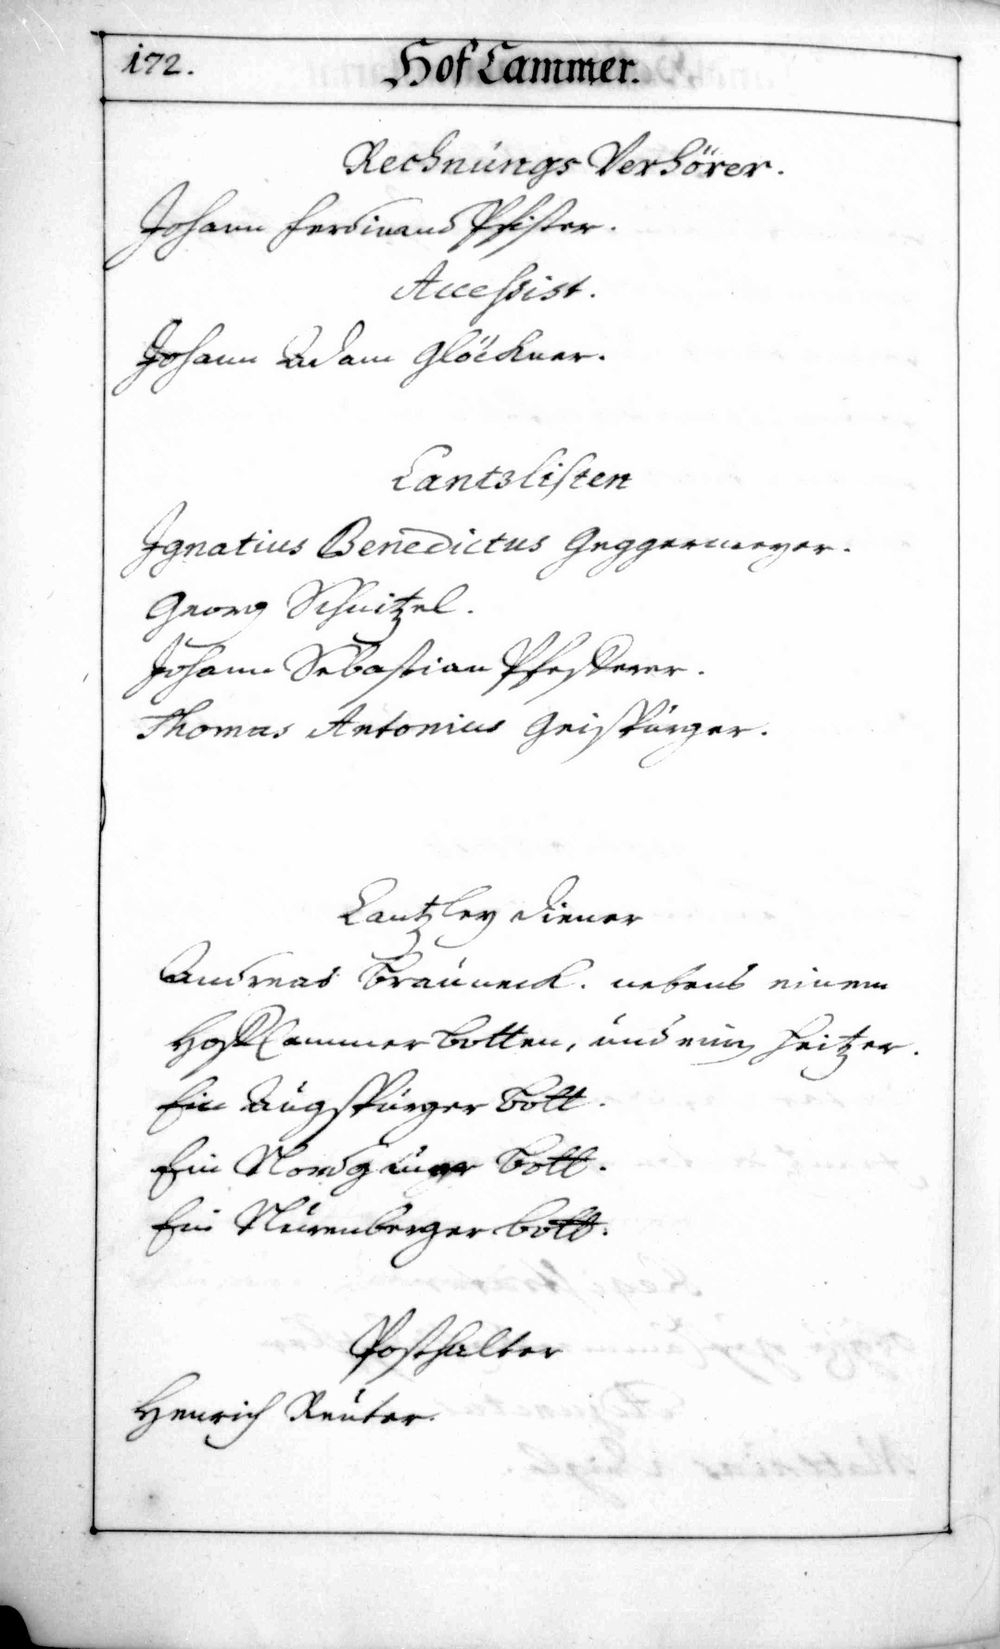 172.
Hof Cammer.
Rechnungs Verhörer.
Johann Ferdinand Pfister.
Accessist.
Johann Adam Glöckner.
Cantzlisten
Ignatius Benedictus Geggermeyer.
Georg Schnitzel.
Johann Sebastian Pfesterer.
Thomas Antonius Geispurger.
Cantzley Diener
Andreas Brauneck. nebens einem
HoffCammer botten, und ein Heitzer.
Ein Augspurger Bott.
Ein Bott.
Ein Nürenberger bott.
Posthalter
Henrich Reuter.